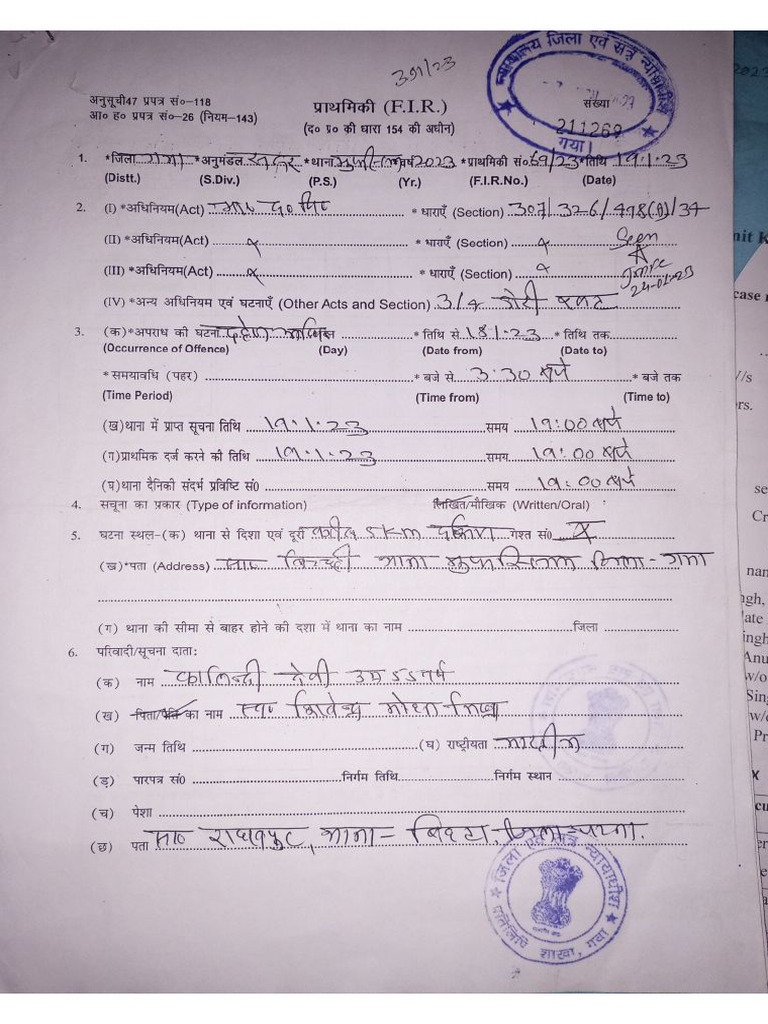 391/23
न्यायालय जिला एवं सत्र न्यायाधीश
गया।
अनुसूची47 प्रपत्र सं०-118
आ० ह० प्रपत्र सं०-26 (नियम-143)
प्राथमिकी (F.I.R.)
(द० प्र० की धारा 154 की अधीन)
संख्या
211269
1. *जिला गया *अनुमंडल सदर *थाना मुफसिल वर्ष 2023 *प्राथमिकी सं० 69/23 *तिथि 19.1.23
(Distt.) (S.Div.) (P.S.) (Yr.) (F.I.R.No.) (Date)
2. (I) *अधिनियम(Act) भा० द० वि० * धाराएँ (Section) 307/326/498(A)/34
(II) *अधिनियम(Act) x * धाराएँ (Section) x Seen
(III) *अधिनियम(Act) x * धाराएँ (Section) x
24-01-23
(IV) *अन्य अधिनियम एवं घटनाएँ (Other Acts and Section) 3/4 डी०पी० एक्ट
3. (क)*अपराध की घटना * तिथि से 18.1.23 * तिथि तक
(Occurrence of Offence) (Day) (Date from) (Date to)
* समयावधि (पहर) * बजे से 3:30 बजे * बजे तक
(Time Period) (Time from) (Time to)
(ख)थाना में प्राप्त सूचना तिथि 19.1.23 समय 19:00 बजे
(ग)प्राथमिक दर्ज करने की तिथि 19.1.23 समय 19:00 बजे
(घ)थाना दैनिकी संदर्भ प्रविष्टि सं0 समय 19:00 बजे
4. सचूना का प्रकार (Type of information) लिखित/मौखिक (Written/Oral)
5. घटना स्थल-(क) थाना से दिशा एवं दूरी करीब 5 KM दक्षिण गश्त सं० X
(ख)*पता (Address) सा० थाना मुफसिल जिला-गया
(ग) थाना की सीमा से बाहर होने की दशा में थाना का नाम जिला
6. परिवादी/सूचना दाता:
(क) नाम कालिन्दी देवी उम्र 55 वर्ष
(ख) पिता/पति का नाम स्व०
(ग) जन्म तिथि (घ) राष्ट्रीयता भारतीय
(ड़) पारपत्र सं0 निर्गम तिथि निर्गम स्थान
(च) पेशा
(छ) पता सा० राघोपुर, थाना- बिहटा, जिला-पटना.
जिला एवं सत्र न्यायाधीश
प्रतिलिपि शाखा, गया